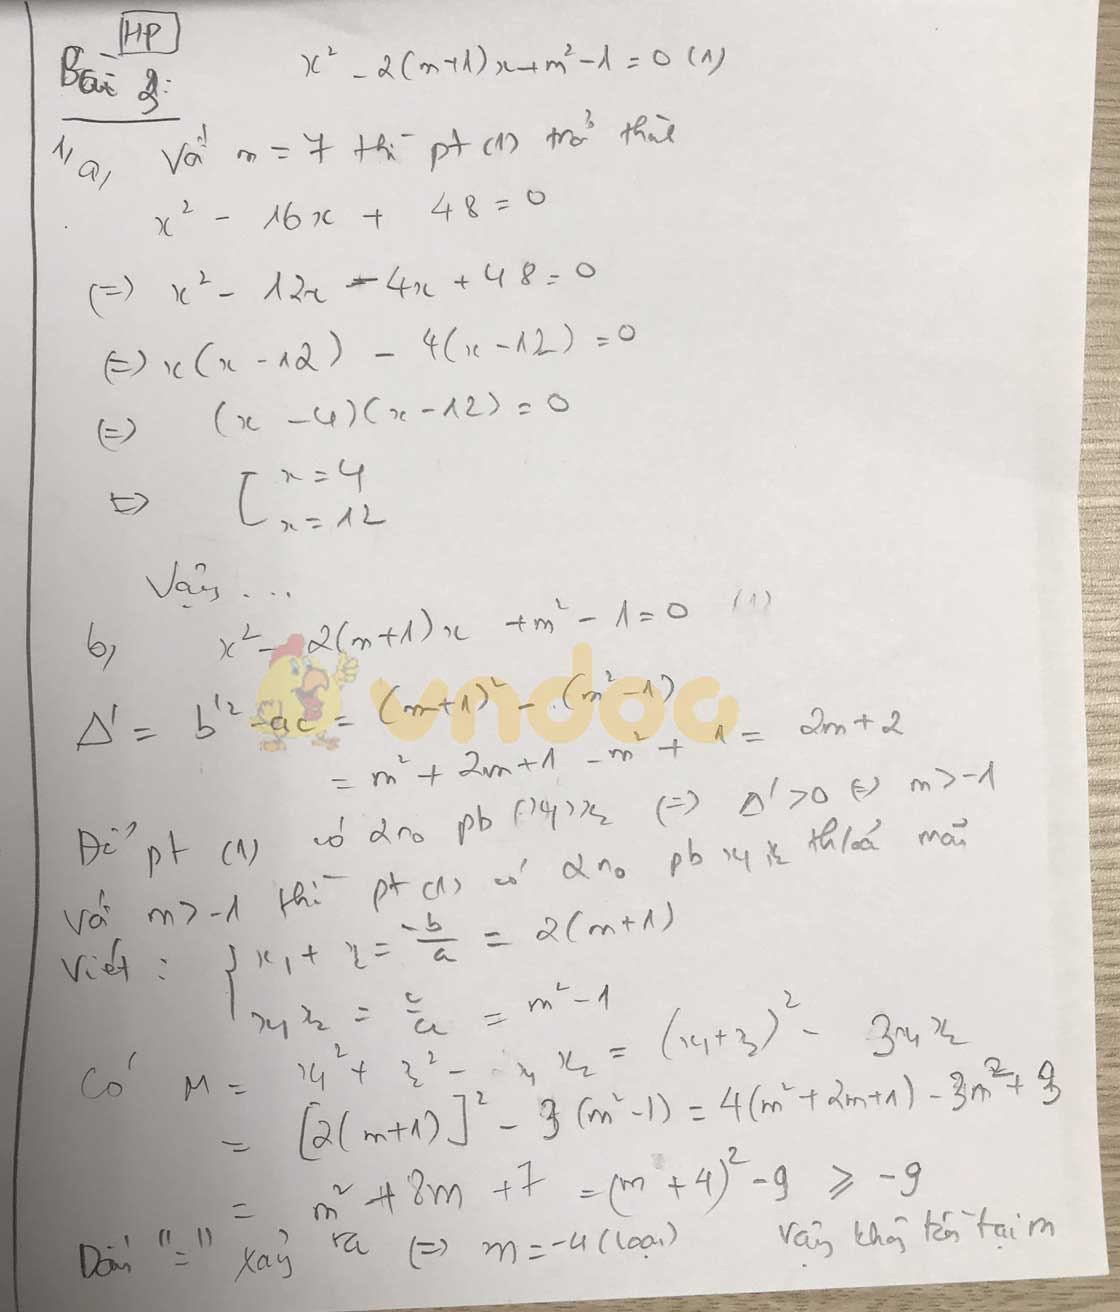 HP
Bài 3:
x² - 2(m+1)x + m² - 1 = 0 (1)
1, a, Với m = 7 thì pt (1) trở thành
x² - 16x + 48 = 0
(=) x² - 12x - 4x + 48 = 0
(=) x(x - 12) - 4(x - 12) = 0
(=) (x - 4)(x - 12) = 0
(=) [ x = 4
x = 12
Vậy ...
b, x² - 2(m+1)x + m² - 1 = 0 (1)
vndoc
Δ' = b'² - ac = (m+1)² - (m² - 1)
= m² + 2m + 1 - m² + 1 = 2m + 2
Để pt (1) có 2 no pb x₁, x₂ (=) Δ' > 0 (=) m > -1
Với m > -1 thì pt (1) có 2 no pb x₁ x₂ thoả mãn
Viét : { x₁ + x₂ = -b/a = 2(m+1)
x₁ x₂ = c/a = m² - 1
Có M = x₁² + x₂² - x₁ x₂ = (x₁ + x₂)² - 3x₁ x₂
= [2(m+1)]² - 3(m² - 1) = 4(m² + 2m + 1) - 3m² + 3
= m² + 8m + 7 = (m + 4)² - 9 ⩾ -9
Dấu "=" xảy ra (=) m = -4 (loại) Vậy không tồn tại m